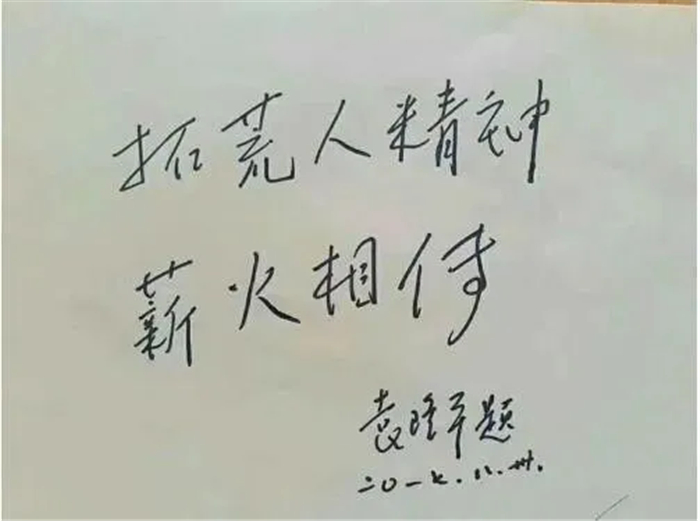 拓荒人精神
薪火相传
袁隆平题
二〇一七.八.卅.